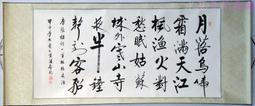 月落烏啼
霜滿天江
楓漁火對
愁眠姑蘇
城外寒山寺
夜半鐘
聲到客船